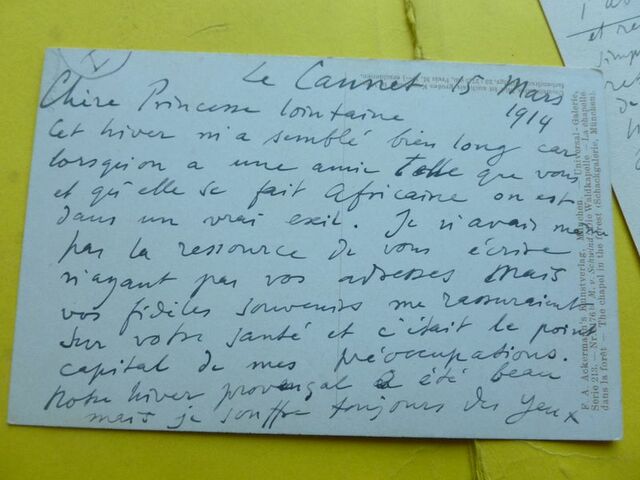 Le Cannet 15 Mars
1914
Chère Princesse lointaine
Cet hiver m'a semblé bien long car
lorsqu'on a une amie telle que vous
et qu'elle se fait Africaine on est
dans un vrai exil. Je n'avais même
pas la ressource de vous écrire
n'ayant pas vos adresses Mais
vos fidèles souvenirs me rassuraient
sur votre santé et c'était le point
capital de mes préoccupations.
Notre hiver provençal a été beau
mais je souffre toujours des yeux
F. A. Ackermann's Kunstverlag, München. — Universal-Galerie,
Serie 213. — Nr. 2761 M. v. Schwind: Die Waldkapelle — La chapelle
dans la forêt — The chapel in the forest (Schackgalerie, München).